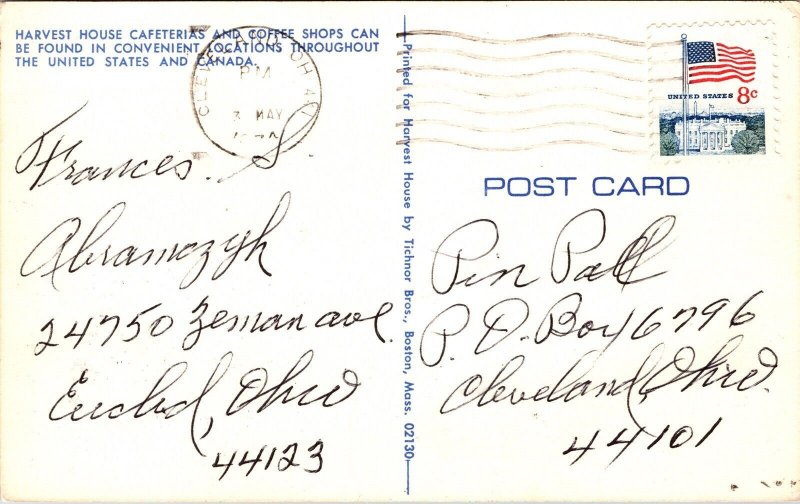 HARVEST HOUSE CAFETERIAS AND COFFEE SHOPS CAN
BE FOUND IN CONVENIENT LOCATIONS THROUGHOUT
THE UNITED STATES AND CANADA.
CLEVELAND, OH 441
PM
3 MAY
Frances S.
Abramczyk
24750 Zeman ave.
Euclid, Ohio
44123
Printed for Harvest House by Tichnor Bros., Boston, Mass. 02130
UNITED STATES 8c
POST CARD
Pin Pall
P. O. Box 6796
Cleveland, Ohio.
44101